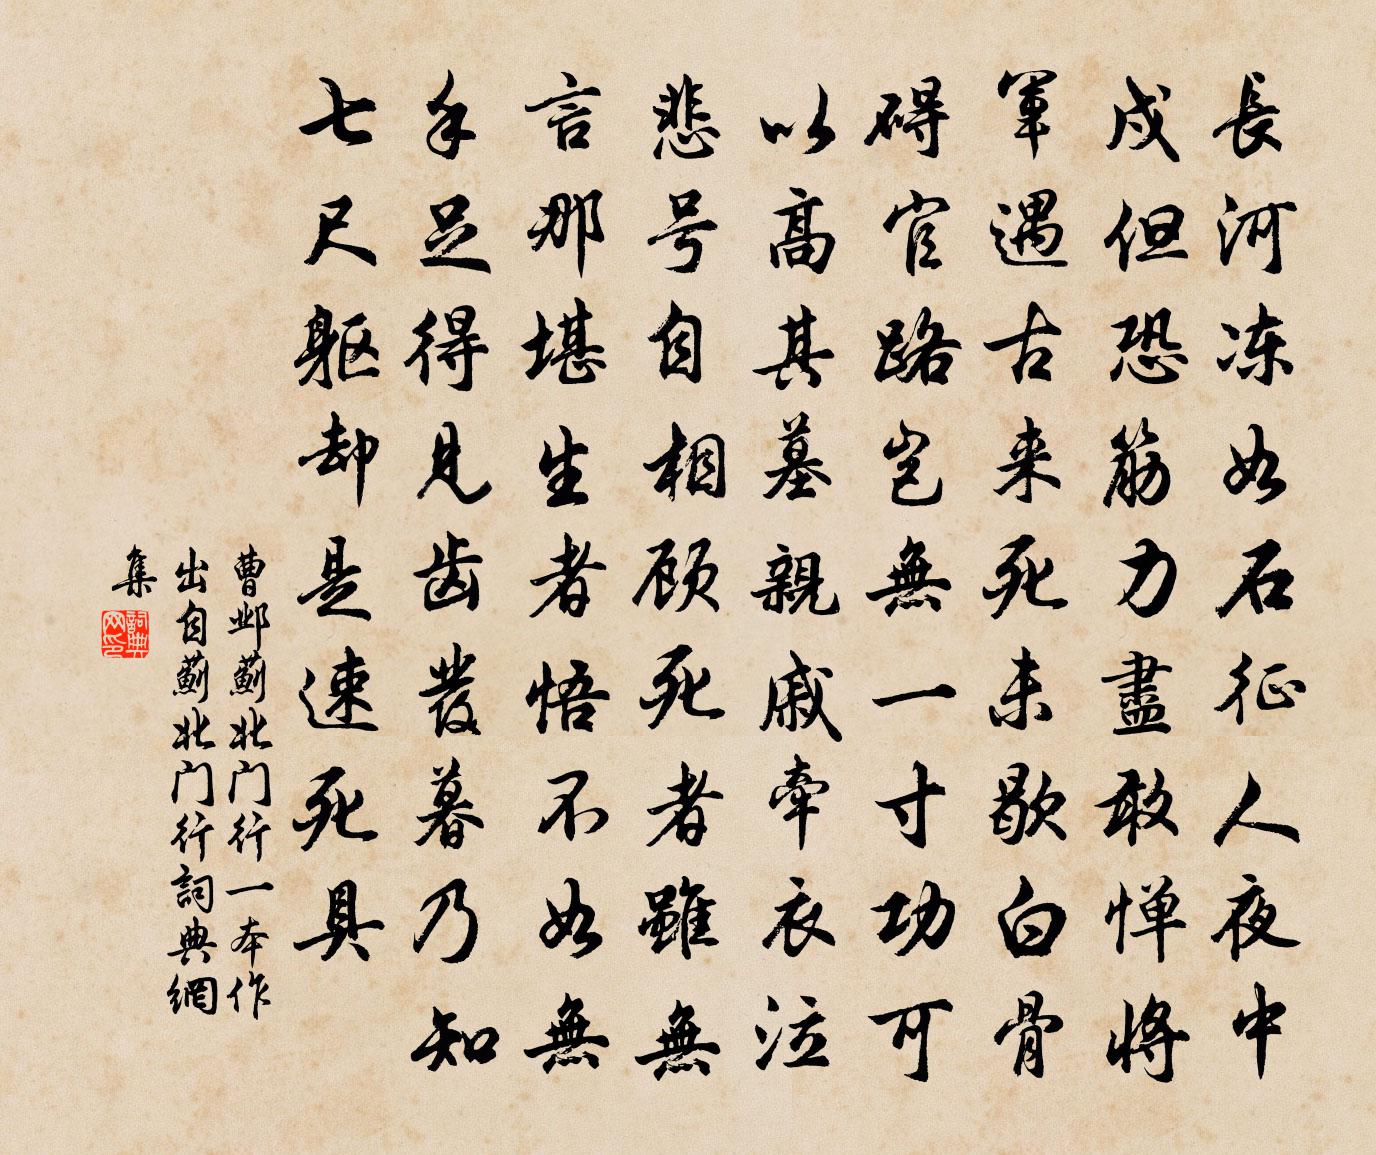 長河冻如石征人夜中
戍但恐筋力盡敢惮將
軍遇古来死未歇白骨
碍官路岂無一寸功可
以高其墓親戚牽衣泣
悲号自相顾死者雖無
言那堪生者悟不如無
手足得見齿发暮乃知
七尺躯却是速死具
曹邺蓟北门行一本作
出自蓟北门行詞典網
集
詞典
网印